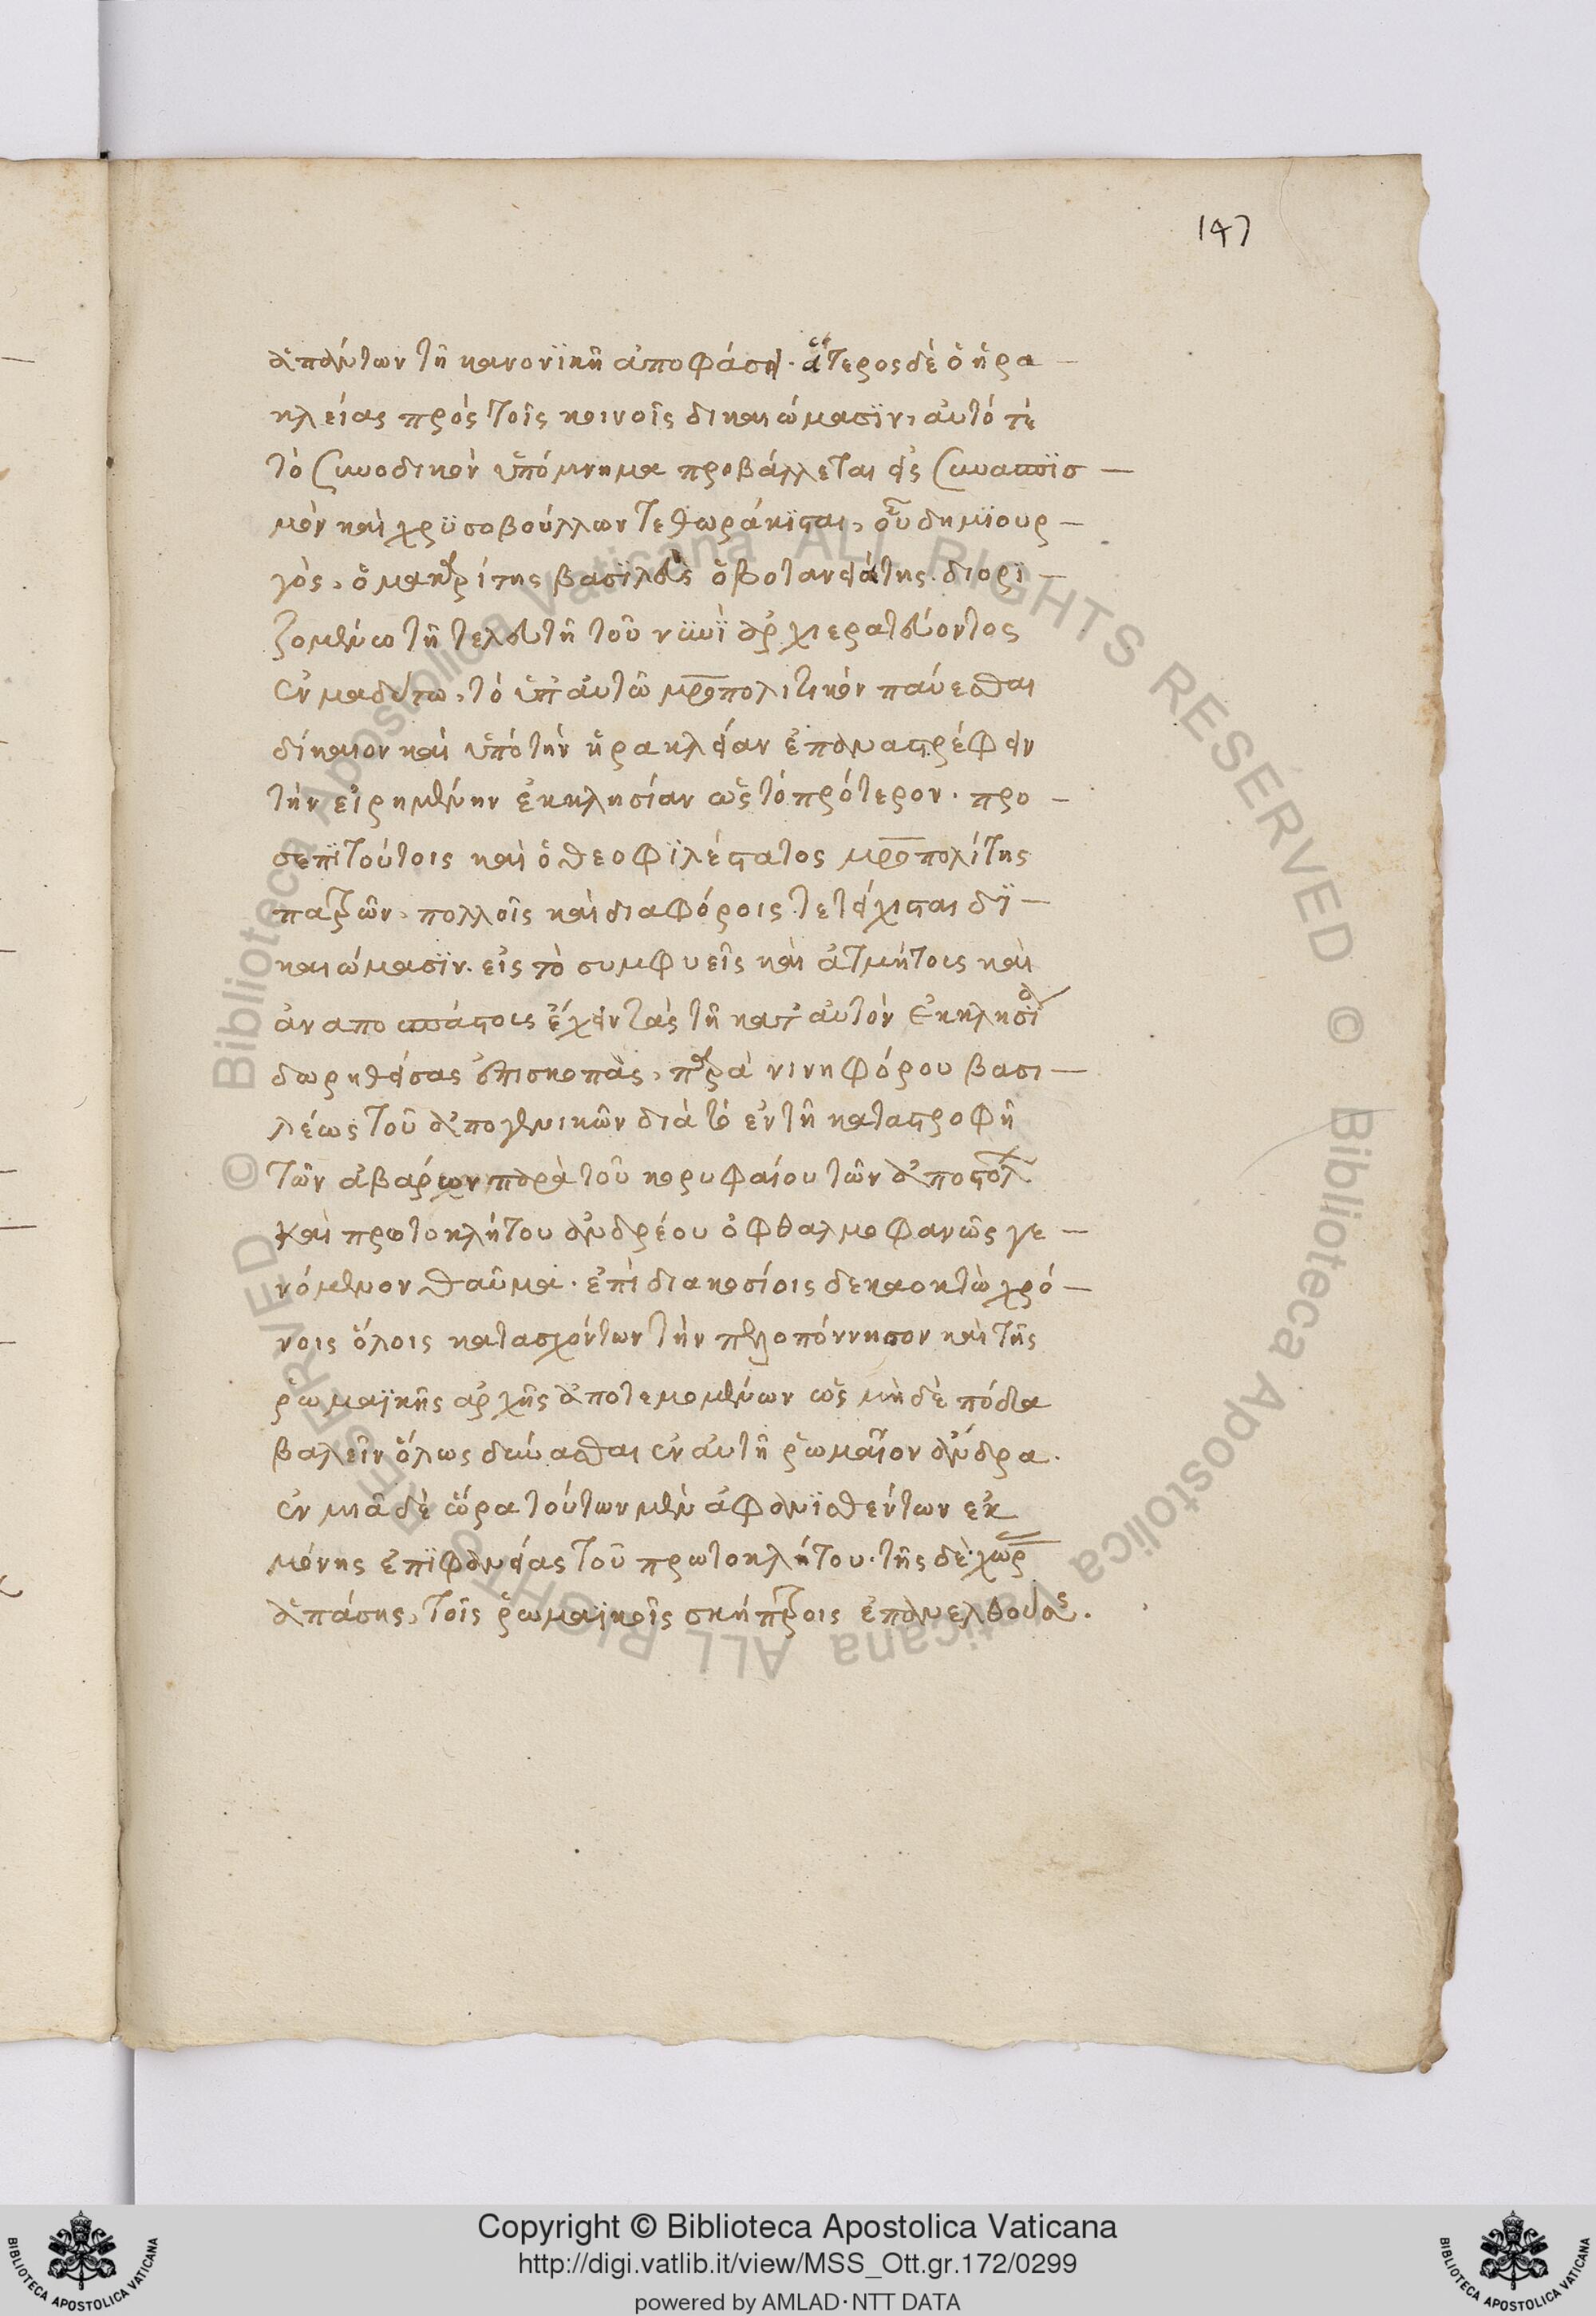 147
ἁπάντων τῆ κανονϊκῆ ἀποφάσει. ἅτερος δὲ ὁ ἡρα
κλείας πρὸς τοῖς κοινοῖς δικαιώμασϊν, αὐτό τε
τὸ συνοδικὸν ὑπόμνημα προβάλλεται εἰς συνασπϊσ
μὸν καὶ χρϋσοβούλλων τεθωράκϊσται, οὗ δημϊουρ
γὸς, ὁ μακαρίτης βασϊλεὺς ὁ βοτανειάτης. διορϊ
ζομένω τῆ τελευτῆ τοῦ νῦνϊ ἀρχιερατεύοντος
ἐν μαδύτω, τὸ ἐπ' αὐτῶ μροπολιτικὸν παύεσθαι
δίκαιον καὶ ὑπὸ τὴν ἡρακλείαν ἐπαναστρέφειν
τὴν εἰρημένην ἐκκλησίαν ὡς τὸ πρότερον. προ
σεπϊ τούτοις καὶ ὁ θεοφϊλέστατος μροπολίτης
πατρῶν, πολλοῖς καὶ διαφόροις τετείχισται δϊ
καιώμασϊν. εἰς τὸ συμφυεῖς καὶ ἀτμήτους καὶ
ἀναποσπάστους ἔχειν τὰς τῆ κατ' αὐτὸν ἐκκλησία
δωρηθείσας ἐπισκοπὰς, παρὰ νικηφόρου βασι
λέως τοῦ ἀπὸ γενικῶν διὰ τὸ ἐν τῆ καταστροφῆ
τῶν ἀβάρων παρὰ τοῦ κορυφαίου τῶν ἀποστόλ
καὶ πρωτοκλήτου ἀνδρέου ὀφθαλμοφανῶς γε
νόμενον θαῦμα. ἐπὶ διακοσίοις δεκαοκτὼ χρό
νοις ὅλοις κατασχόντων τὴν πελοπόννησον καὶ τῆς
ῥωμαϊκῆς ἀρχῆς ἀποτεμομένων ὡς μὴ δὲ πόδα
βαλεῖν ὅλως δύνασθαι ἐν αὐτῆ ῥωμαῖον ἄνδρα.
ἐν μιᾶ δὲ ὥρα τούτων μὲν ἀφανϊσθέντων ἐκ
μόνης ἐπϊφανείας τοῦ πρωτοκλήτου. τῆς δὲ χώρ
ἁπάσης, τοῖς ῥωμαϊκοῖς σκήπτροις ἐπανελθούσ.
Copyright © Biblioteca Apostolica Vaticana
http://digi.vatlib.it/view/MSS_Ott.gr.172/0299
powered by AMLAD·NTT DATA